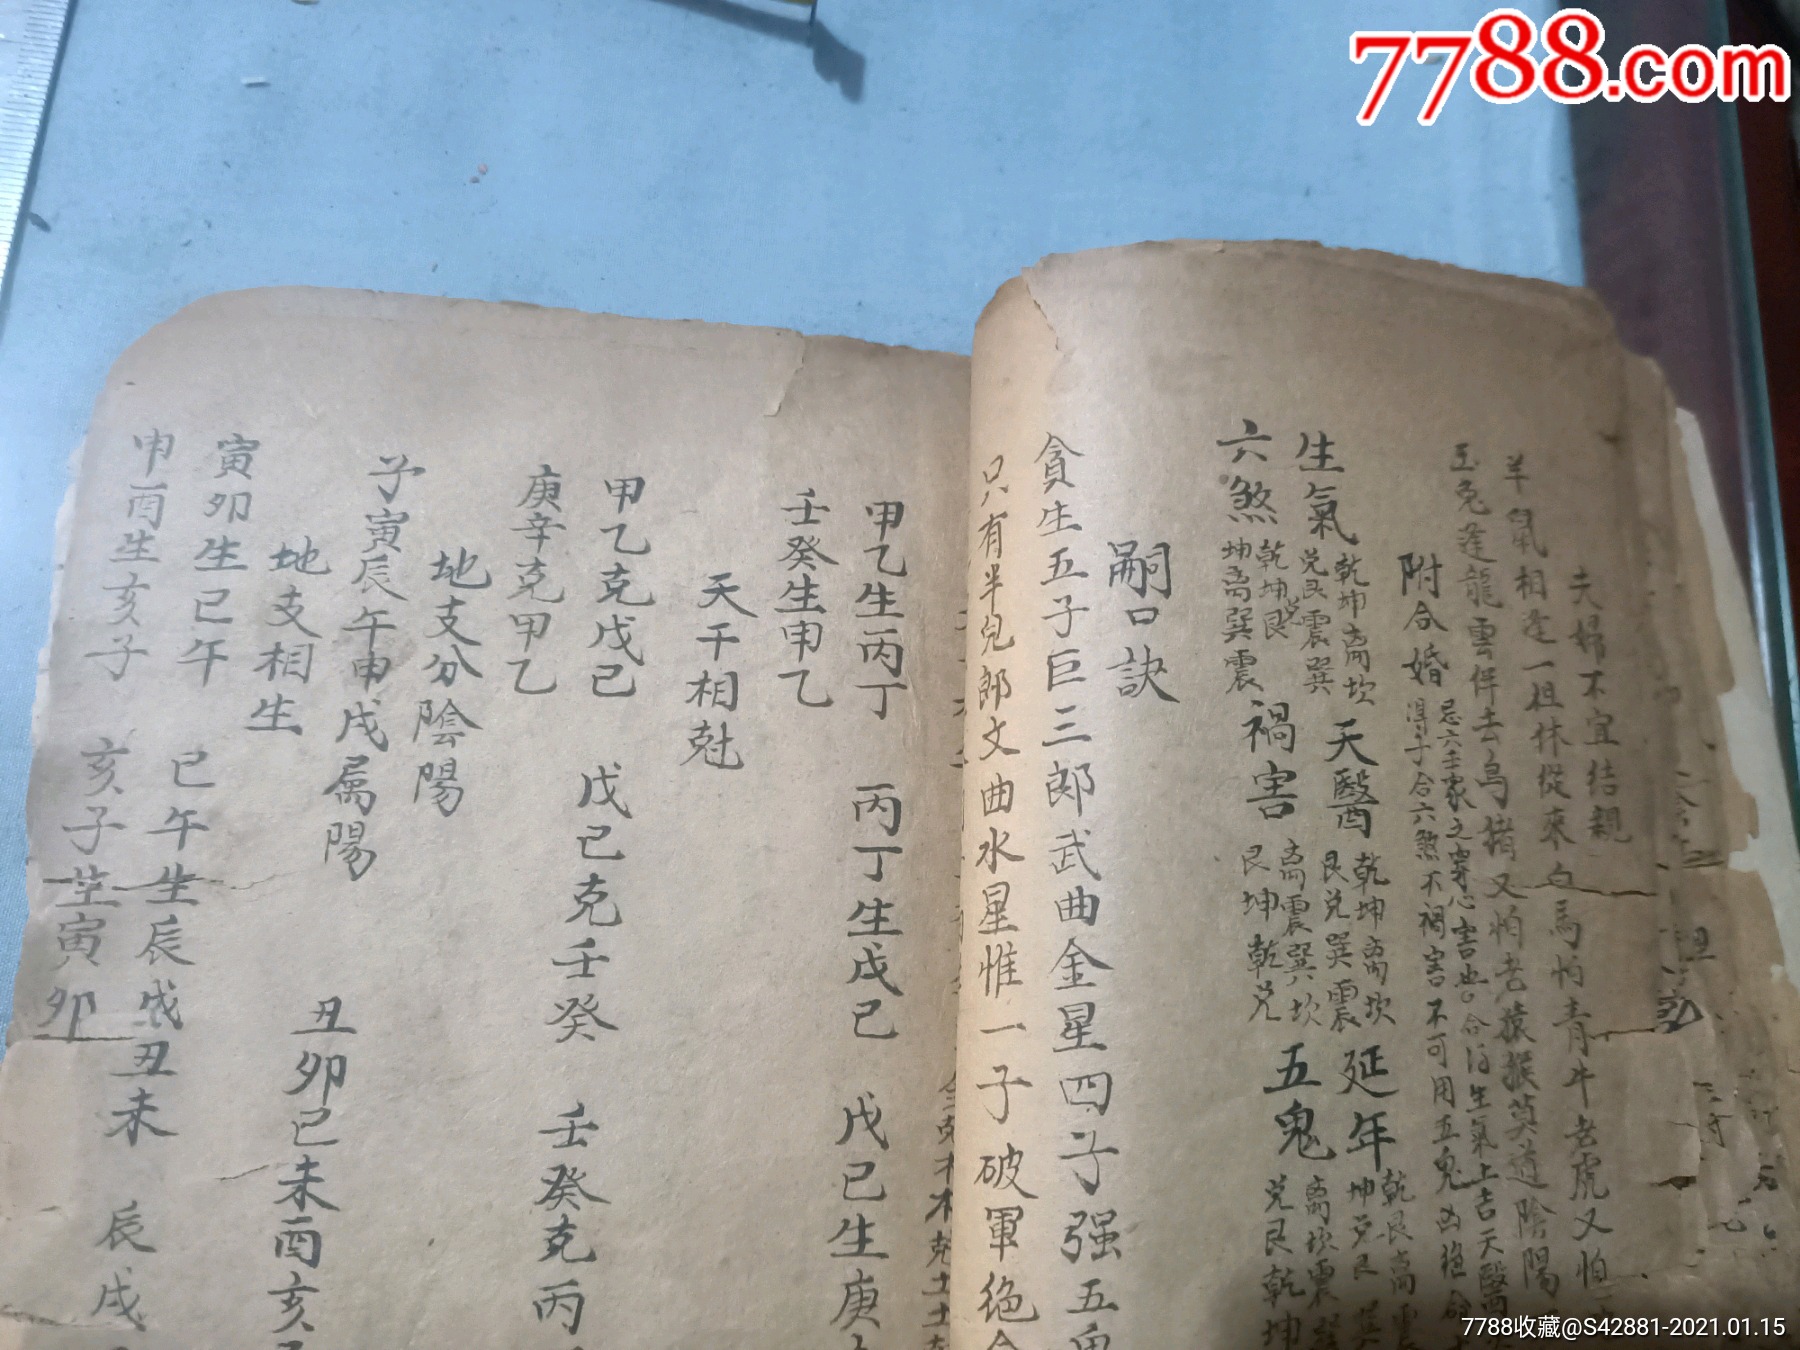 7788.com
夫婦不宜結親
羊鼠相逢一旦休從來白馬怕青牛老虎又怕
玉兔逢龍雲伴去鳥猪又怕老猿猴莫道陰陽
附合婚
忌六壬家之穿心害也合得生氣上吉天醫
得子合六煞不禍害不可用五鬼凶絕命
生氣
乾坤离坎
兌艮震巽
天醫
乾坤离坎
艮兌巽震
延年
乾艮离
坤兌艮巽
六煞
乾坤艮兌
坤离巽震
禍害
离震巽坎
艮坤乾兌
五鬼
离坎震
兌艮乾坤
嗣口訣
貪生五子巨三郎武曲金星四子强五鬼
只有半兒郎文曲水星惟一子破軍絕命
甲乙生丙丁 丙丁生戊己 戊己生庚
壬癸生甲乙
天干相尅
甲乙克戊己 戊己克壬癸 壬癸克丙
庚辛克甲乙
地支分陰陽
子寅辰午申戌屬陽 丑卯己未酉亥
地支相生
寅卯生巳午 巳午生辰戌丑未 辰戌
申酉生亥子 亥子生寅卯
7788收藏@S42881-2021.01.15